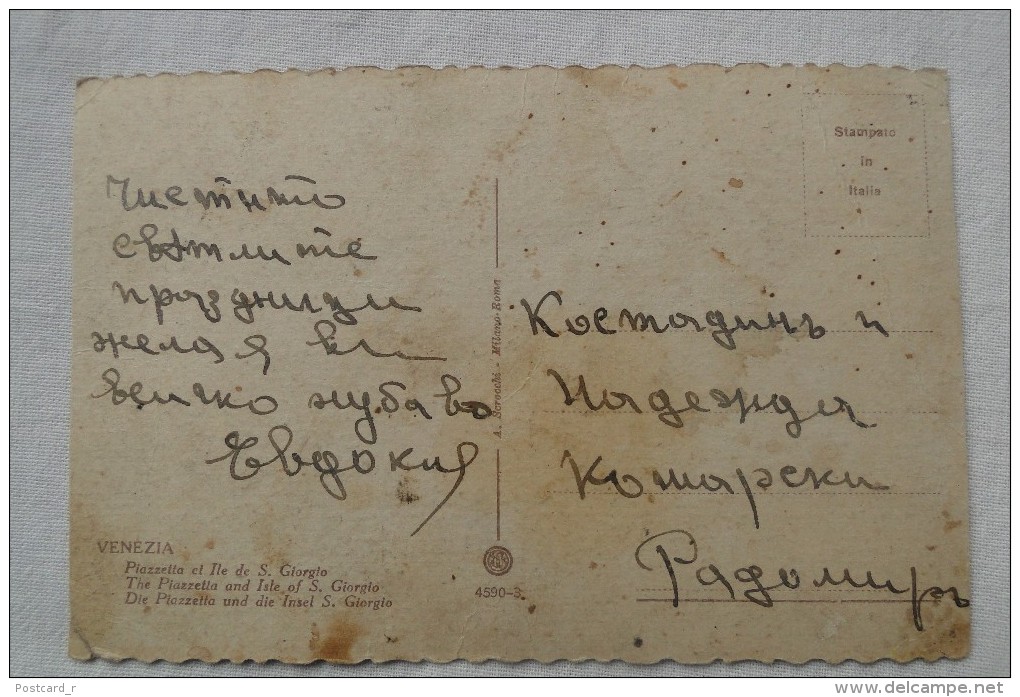 Честито
свѣтлите
праздници
желая Ви
всичко хубаво
Евдокия
VENEZIA
Piazzetta et Ile de S. Giorgio
The Piazzetta and Isle of S. Giorgio
Die Piazzetta und die Insel S. Giorgio
A. Scrocchi - Milano-Roma
4590-3
Stampato
in
Italia
Костадинъ и
Надежда
Комарски
Радомиръ
Postcard_r
www.delcampe.net